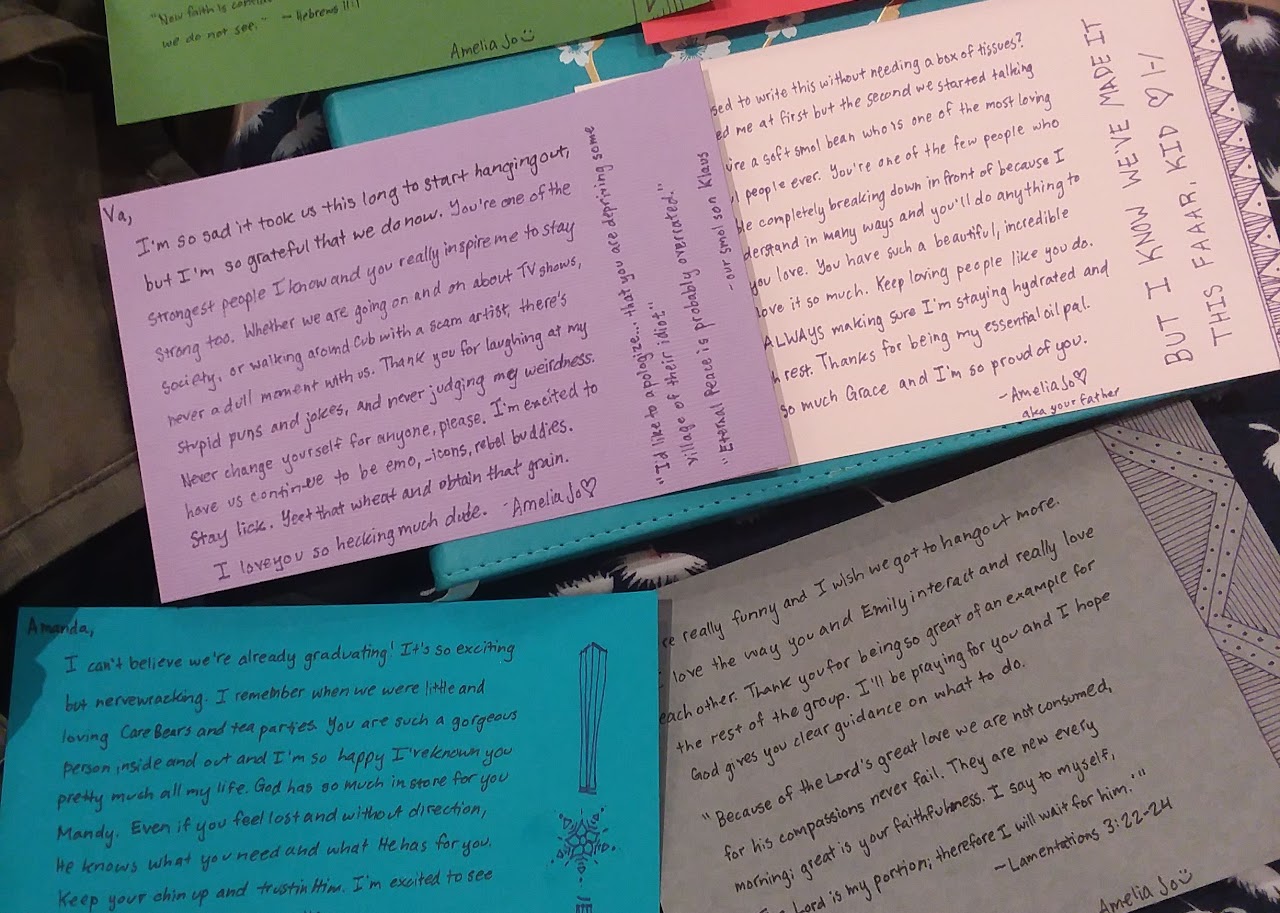 "Now faith is
we do not see." - Hebrews 11:1
Amelia Jo
Va,
I'm so sad it took us this long to start hanging out,
but I'm so grateful that we do now. You're one of the
strongest people I know and you really inspire me to stay
strong too. Whether we are going on and on about TV shows,
society, or walking around Cub with a scam artist, there's
never a dull moment with us. Thank you for laughing at my
stupid puns and jokes, and never judging my weirdness.
Never change yourself for anyone, please. I'm excited to
have us continue to be emo, -icons, rebel buddies.
Stay lick. Yeet that wheat and obtain that grain.
I love you so hecking much dude. -Amelia Jo♡
"I'd like to apologize... that you are depriving some
village of their idiot"
"Eternal Peace is probably overrated."
-our smol son Klaus
sed to write this without needing a box of tissues?
ed me at first but the second we started talking
're a soft smol bean who is one of the most loving
l people ever. You're one of the few people who
le completely breaking down in front of because I
derstand in many ways and you'll do anything to
you love. You have such a beautiful, incredible
love it so much. Keep loving people like you do.
ALWAYS making sure I'm staying hydrated and
h rest. Thanks for being my essential oil pal.
so much Grace and I'm so proud of you.
-Amelia Jo♡
aka your father
BUT I KNOW WE'VE MADE IT
THIS FAAAR, KID ♡ |-/
Amanda,
I can't believe we're already graduating! It's so exciting
but nervewracking. I remember when we were little and
loving Care Bears and tea parties. You are such a gorgeous
person inside and out and I'm so happy I've known you
pretty much all my life. God has so much in store for you
Mandy. Even if you feel lost and without direction,
He knows what you need and what He has for you.
Keep your chin up and trust in Him. I'm excited to see
re really funny and I wish we got to hangout more.
I love the way you and Emily interact and really love
each other. Thank you for being so great of an example for
the rest of the group. I'll be praying for you and I hope
God gives you clear guidance on what to do.
"Because of the Lord's great love we are not consumed,
for his compassions never fail. They are new every
morning; great is your faithfulness. I say to myself,
Lord is my portion; therefore I will wait for him.'"
~Lamentations 3:22-24
Amelia Jo